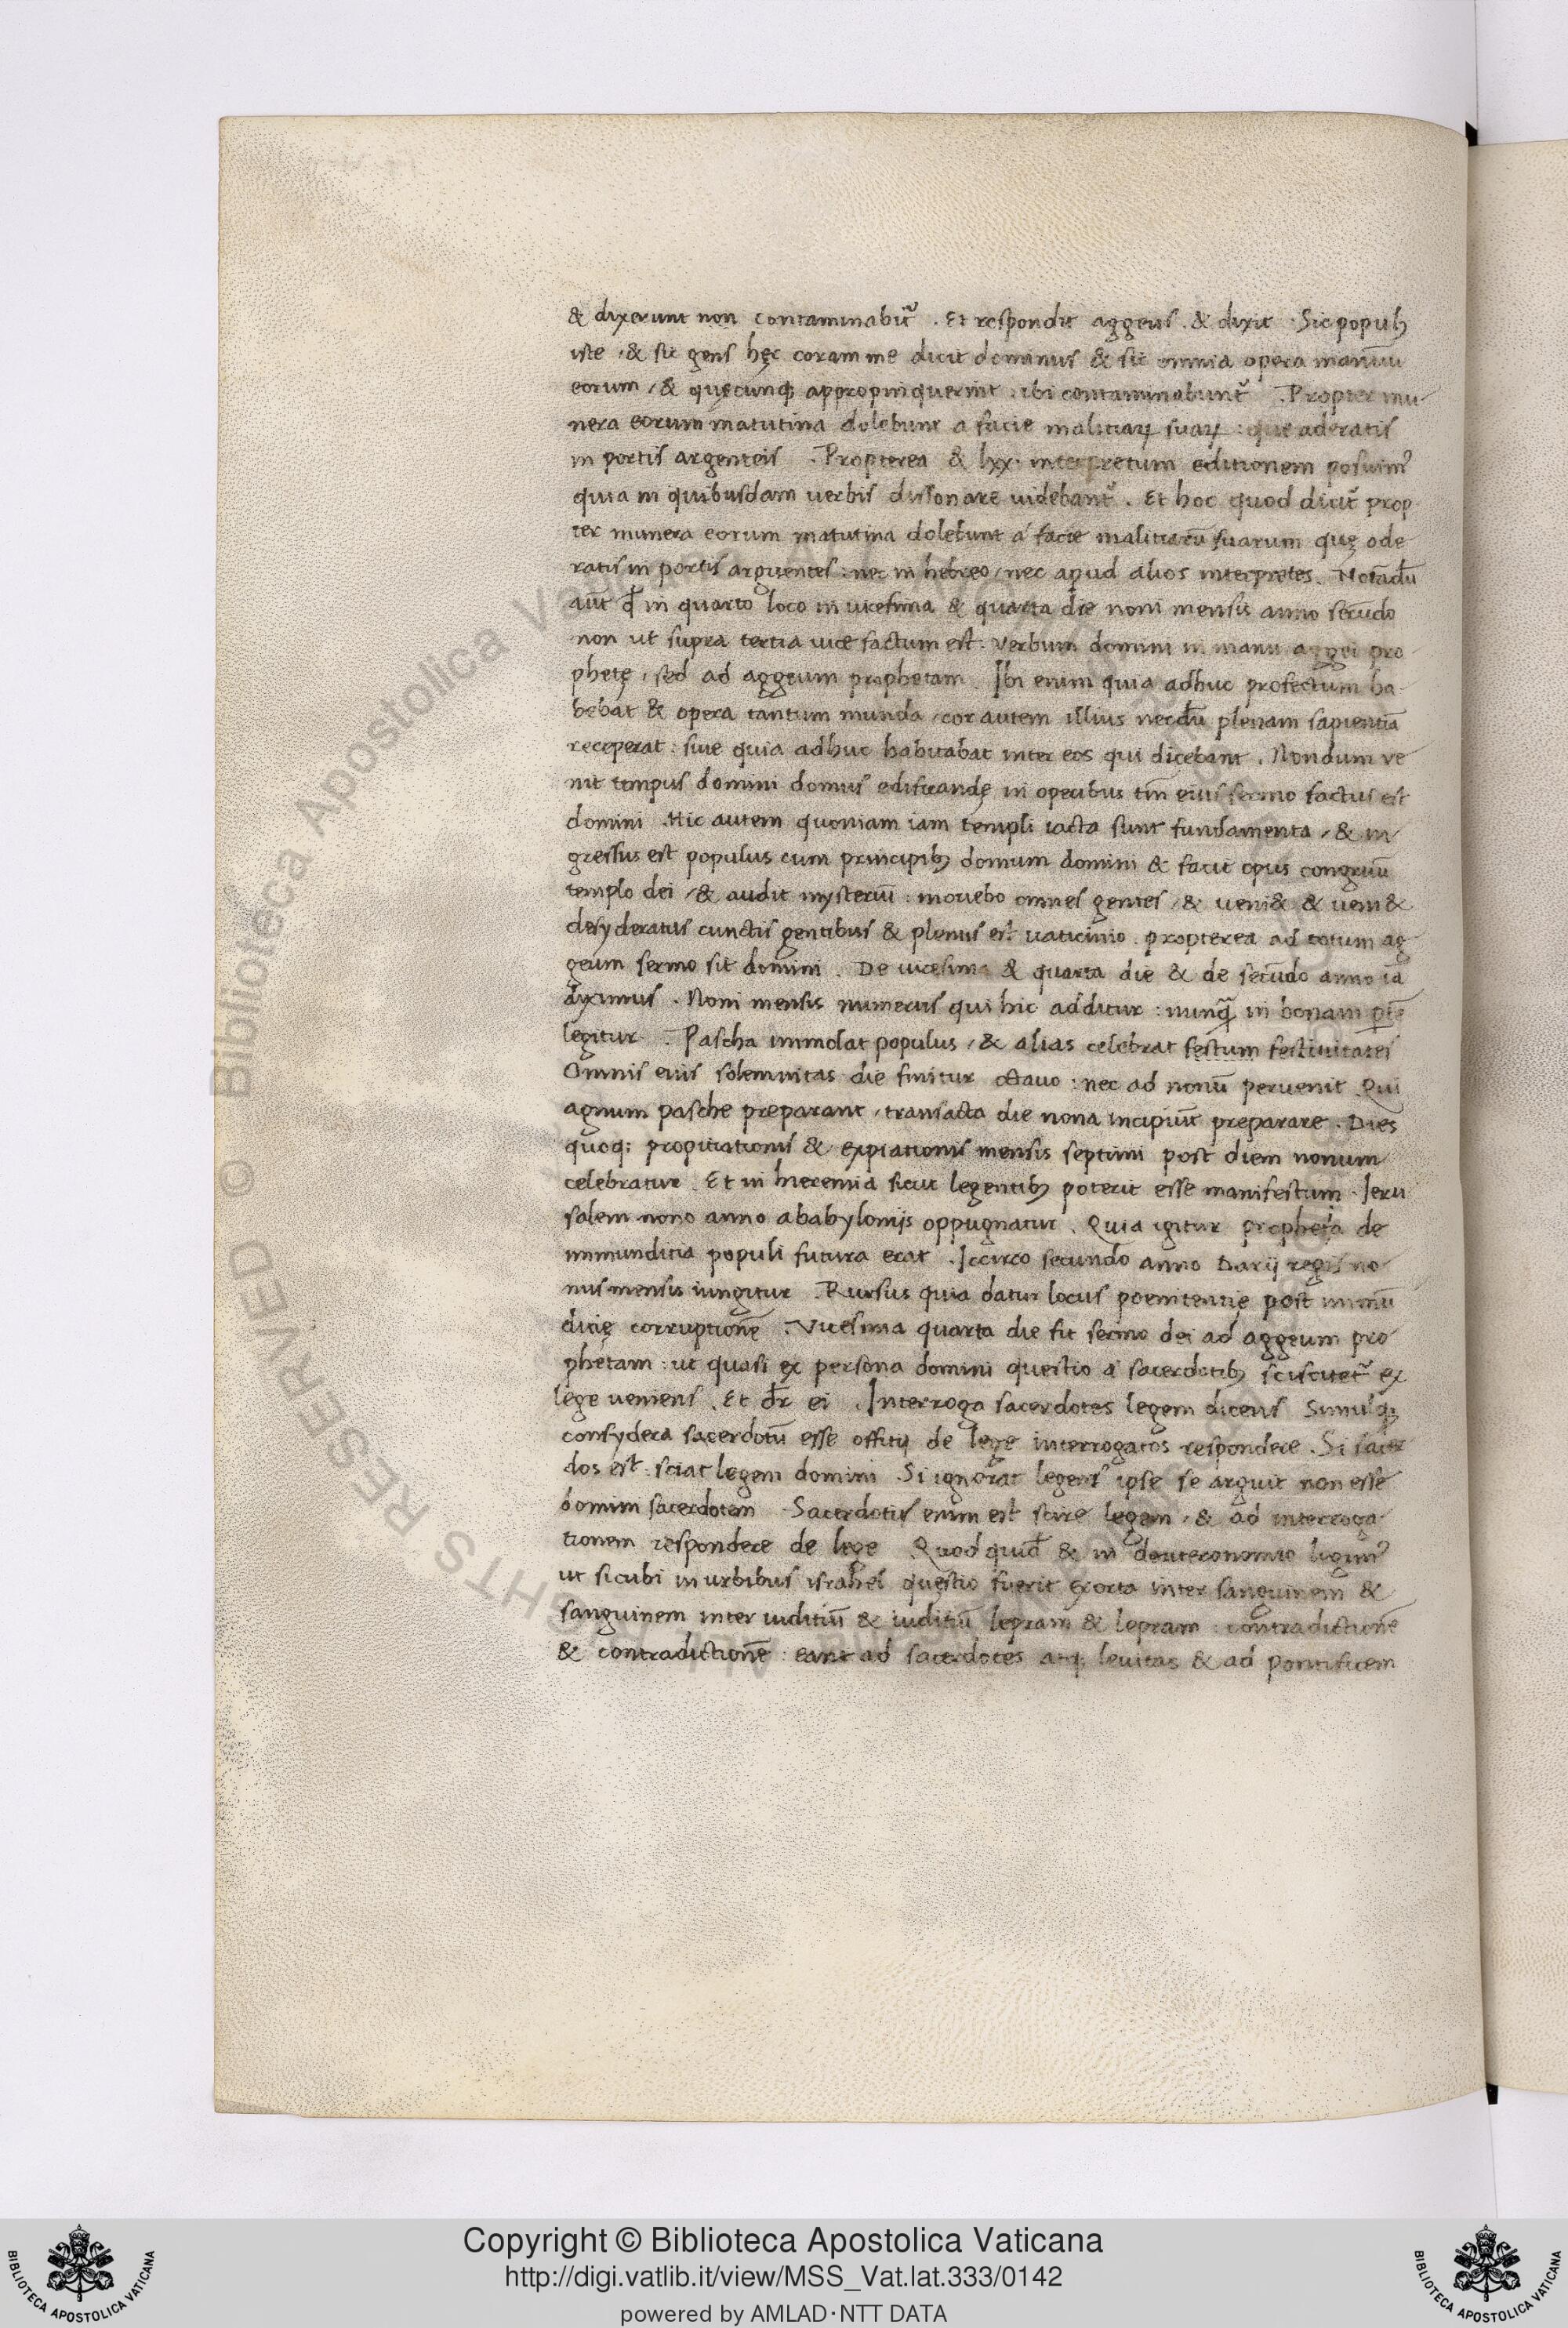 & dixerunt non contaminabit᷑ . Et respondit aggeus . & dixit . Sic populꝫ
iste . & sic gens hęc coram me dicit dominus & sic omnia opera manuū
eorum / & quęcunqꝫ appropinquerint . ibi contaminabunt᷑ . Propter mu-
nera eorum matutina dolebunt a facie malitiaꝝ suaꝝ : que oderatis
in portis argenteis . Propterea & lxx. interpretum editionem posuim᷒
quia in quibusdam uerbis dissonare uidebant᷑ . Et hoc quod dicit᷑ prop
ter munera eorum matutina dolebunt a facie malitiarū suarum quę ode
ratis in portis arguentes : nec in hebreo / nec apud alios interpretes . Notādū
aūt qd̄ in quarto loco in uicesima & quarta die noni mensis anno secūdo
non ut supra tertia uice factum est . Verbum domini in manu aggei pro
phetę , sed ad aggeum prophetam . Ibi enim quia adhuc profectum ha-
bebat & opera tantum munda / cor autem illius necdū plenam sapientiā
receperat : siue quia adhuc habitabat inter eos qui dicebant . Nondum ve
nit tempus domini domus edificandę in operibus tm̄ eius sermo factus est
domini . Hic autem quoniam iam templi iacta sunt fundamenta / & in
gressus est populus cum principibꝫ domum domini & facit opus congruū
templo dei / & audit mysteriū : mouebo omnes gentes / & ueni& & ueni&
desyderatus cunctis gentibus & plenus est uaticinio . propterea ad totum ag
geum sermo fit domini . De uicesima & quarta die & de secūdo anno iā
diximus . Noni mensis numerus qui hic additur : nunq̄ in bonam ꝑtē
legitur . Pascha immolat populus / & alias celebrat festum festiuitates
Omnis eius solemnitas die finitur octauo : nec ad nonū peruenit . Qui
agnum pasche preparant / transacta die nona incipiūt preparare . Dies
quoqꝫ propitiationis & expiationis mensis septimi post diem nonum
celebratur . Et in hieremia sicut legentibꝫ poterit esse manifestum . Ieru
salem nono anno a babylonijs oppugnatur . Quia igitur propheta de
immunditia populi futura erat . Iccirco secundo anno Darij regis no
nus mensis iungitur . Rursus quia datur locus poenitentię post immū
ditię corruptionē . Vicesima quarta die fit sermo dei ad aggeum pro
phetam : ut quasi ex persona domini questio a sacerdotibꝫ sciscitet᷑ ex
lege ueniens . Et dr̄ ei . Interroga sacerdotes legem dicens Simulqꝫ
consydera sacerdotū esse offitij de lege interrogatos respondere . Si sacer
dos est : sciat legem domini . Si ignorat legem ipse se arguit non esse
domini sacerdotem . Sacerdotis enim est scire legem / & ad interroga
tionem respondere de lege . Quod quid̄ & in deuteronomio legim᷒
ut sicubi in urbibus israhel questio fuerit exorta inter sanguinem &
sanguinem inter iuditiū & iuditiū lepram & lepram : contradictionē
& contradictionē : eant ad sacerdotes atqꝫ leuitas & ad pontificem
Copyright © Biblioteca Apostolica Vaticana
http://digi.vatlib.it/view/MSS_Vat.lat.333/0142
powered by AMLAD·NTT DATA